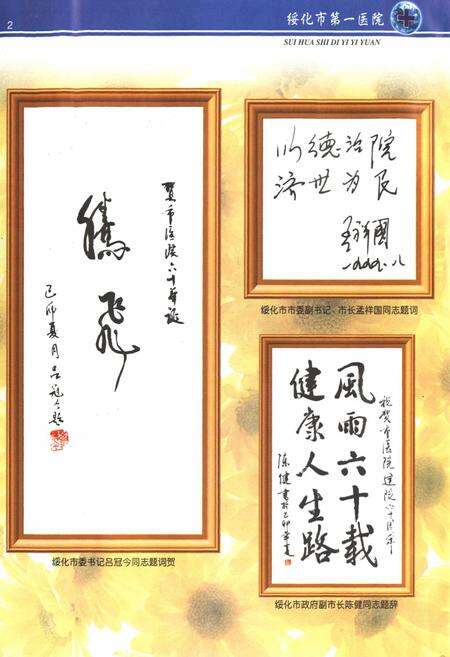 2
绥化市第一医院
SUI HUA SHI DI YI YI YUAN
贺市医院六十年诞
腾飞
己卯夏月吕冠今题
绥化市委书记吕冠今同志题词贺
以德治院
济世为民
孟祥国
一九九九.八
绥化市市委副书记、市长孟祥国同志题词
祝贺市医院建院六十周年
風雨六十載
健康人生路
陈健書於己卯年夏
绥化市政府副市长陈健同志题辞